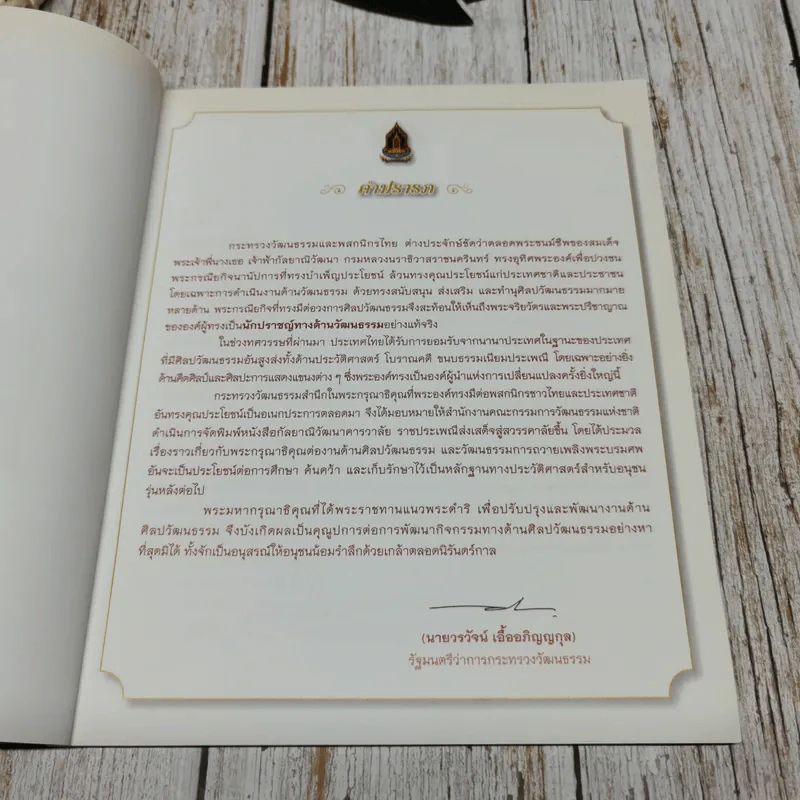 คำปรารภ
กระทรวงวัฒนธรรมและพสกนิกรไทย ต่างประจักษ์ชัดว่าตลอดพระชนม์ชีพของสมเด็จ
พระเจ้าพี่นางเธอ เจ้าฟ้ากัลยาณิวัฒนา กรมหลวงนราธิวาสราชนครินทร์ ทรงอุทิศพระองค์เพื่อปวงชน
พระกรณียกิจนานัปการที่ทรงบำเพ็ญประโยชน์ ล้วนทรงคุณประโยชน์แก่ประเทศชาติและประชาชน
โดยเฉพาะการดำเนินงานด้านวัฒนธรรม ด้วยทรงสนับสนุน ส่งเสริม และทำนุศิลปวัฒนธรรมมากมาย
หลายด้าน พระกรณียกิจที่ทรงมีต่อวงการศิลปวัฒนธรรมจึงสะท้อนให้เห็นถึงพระจริยวัตรและพระปรีชาญาณ
ขององค์ผู้ทรงเป็นนักปราชญ์ทางด้านวัฒนธรรมอย่างแท้จริง
ในช่วงทศวรรษที่ผ่านมา ประเทศไทยได้รับการยอมรับจากนานาประเทศในฐานะของประเทศ
ที่มีศิลปวัฒนธรรมอันสูงส่งทั้งด้านประวัติศาสตร์ โบราณคดี ขนบธรรมเนียมประเพณี โดยเฉพาะอย่างยิ่ง
ด้านคีตศิลป์และศิลปะการแสดงแขนงต่าง ๆ ซึ่งพระองค์ทรงเป็นองค์ผู้นำแห่งการเปลี่ยนแปลงครั้งยิ่งใหญ่นี้
กระทรวงวัฒนธรรมสำนึกในพระกรุณาธิคุณที่พระองค์ทรงมีต่อพสกนิกรชาวไทยและประเทศชาติ
อันทรงคุณประโยชน์เป็นอเนกประการตลอดมา จึงได้มอบหมายให้สำนักงานคณะกรรมการวัฒนธรรมแห่งชาติ
ดำเนินการจัดพิมพ์หนังสือกัลยาณิวัฒนาคารวาลัย ราชประเพณีส่งเสด็จสู่สวรรคาลัยขึ้น โดยได้ประมวล
เรื่องราวเกี่ยวกับพระกรุณาธิคุณต่องานด้านศิลปวัฒนธรรม และวัฒนธรรมการถวายเพลิงพระบรมศพ
อันจะเป็นประโยชน์ต่อการศึกษา ค้นคว้า และเก็บรักษาไว้เป็นหลักฐานทางประวัติศาสตร์สำหรับอนุชน
รุ่นหลังต่อไป
พระมหากรุณาธิคุณที่ได้พระราชทานแนวพระดำริ เพื่อปรับปรุงและพัฒนางานด้าน
ศิลปวัฒนธรรม จึงบังเกิดผลเป็นคุณูปการต่อการพัฒนากิจกรรมทางด้านศิลปวัฒนธรรมอย่างหา
ที่สุดมิได้ ทั้งจักเป็นอนุสรณ์ให้อนุชนน้อมรำลึกด้วยเกล้าตลอดนิรันตร์กาล
(นายวรวัจน์ เอื้ออภิญญกุล)
รัฐมนตรีว่าการกระทรวงวัฒนธรรม